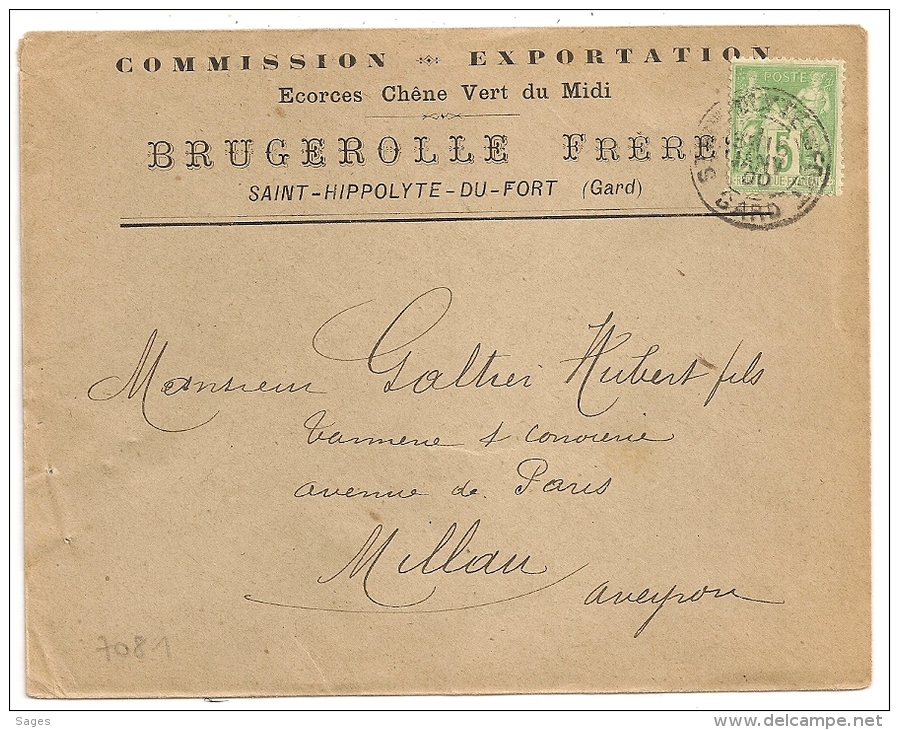 COMMISSION EXPORTATION
Ecorces Chêne Vert du Midi
BRUGEROLLE FRÈRE
SAINT-HIPPOLYTE-DU-FORT (Gard)
POSTE
5
JANV
00
GARD
Monsieur Galtier Hubert fils
Tannerie & Corroierie
avenue de Paris
Millau
Aveyron
7081
Sages
www.delcampe.net